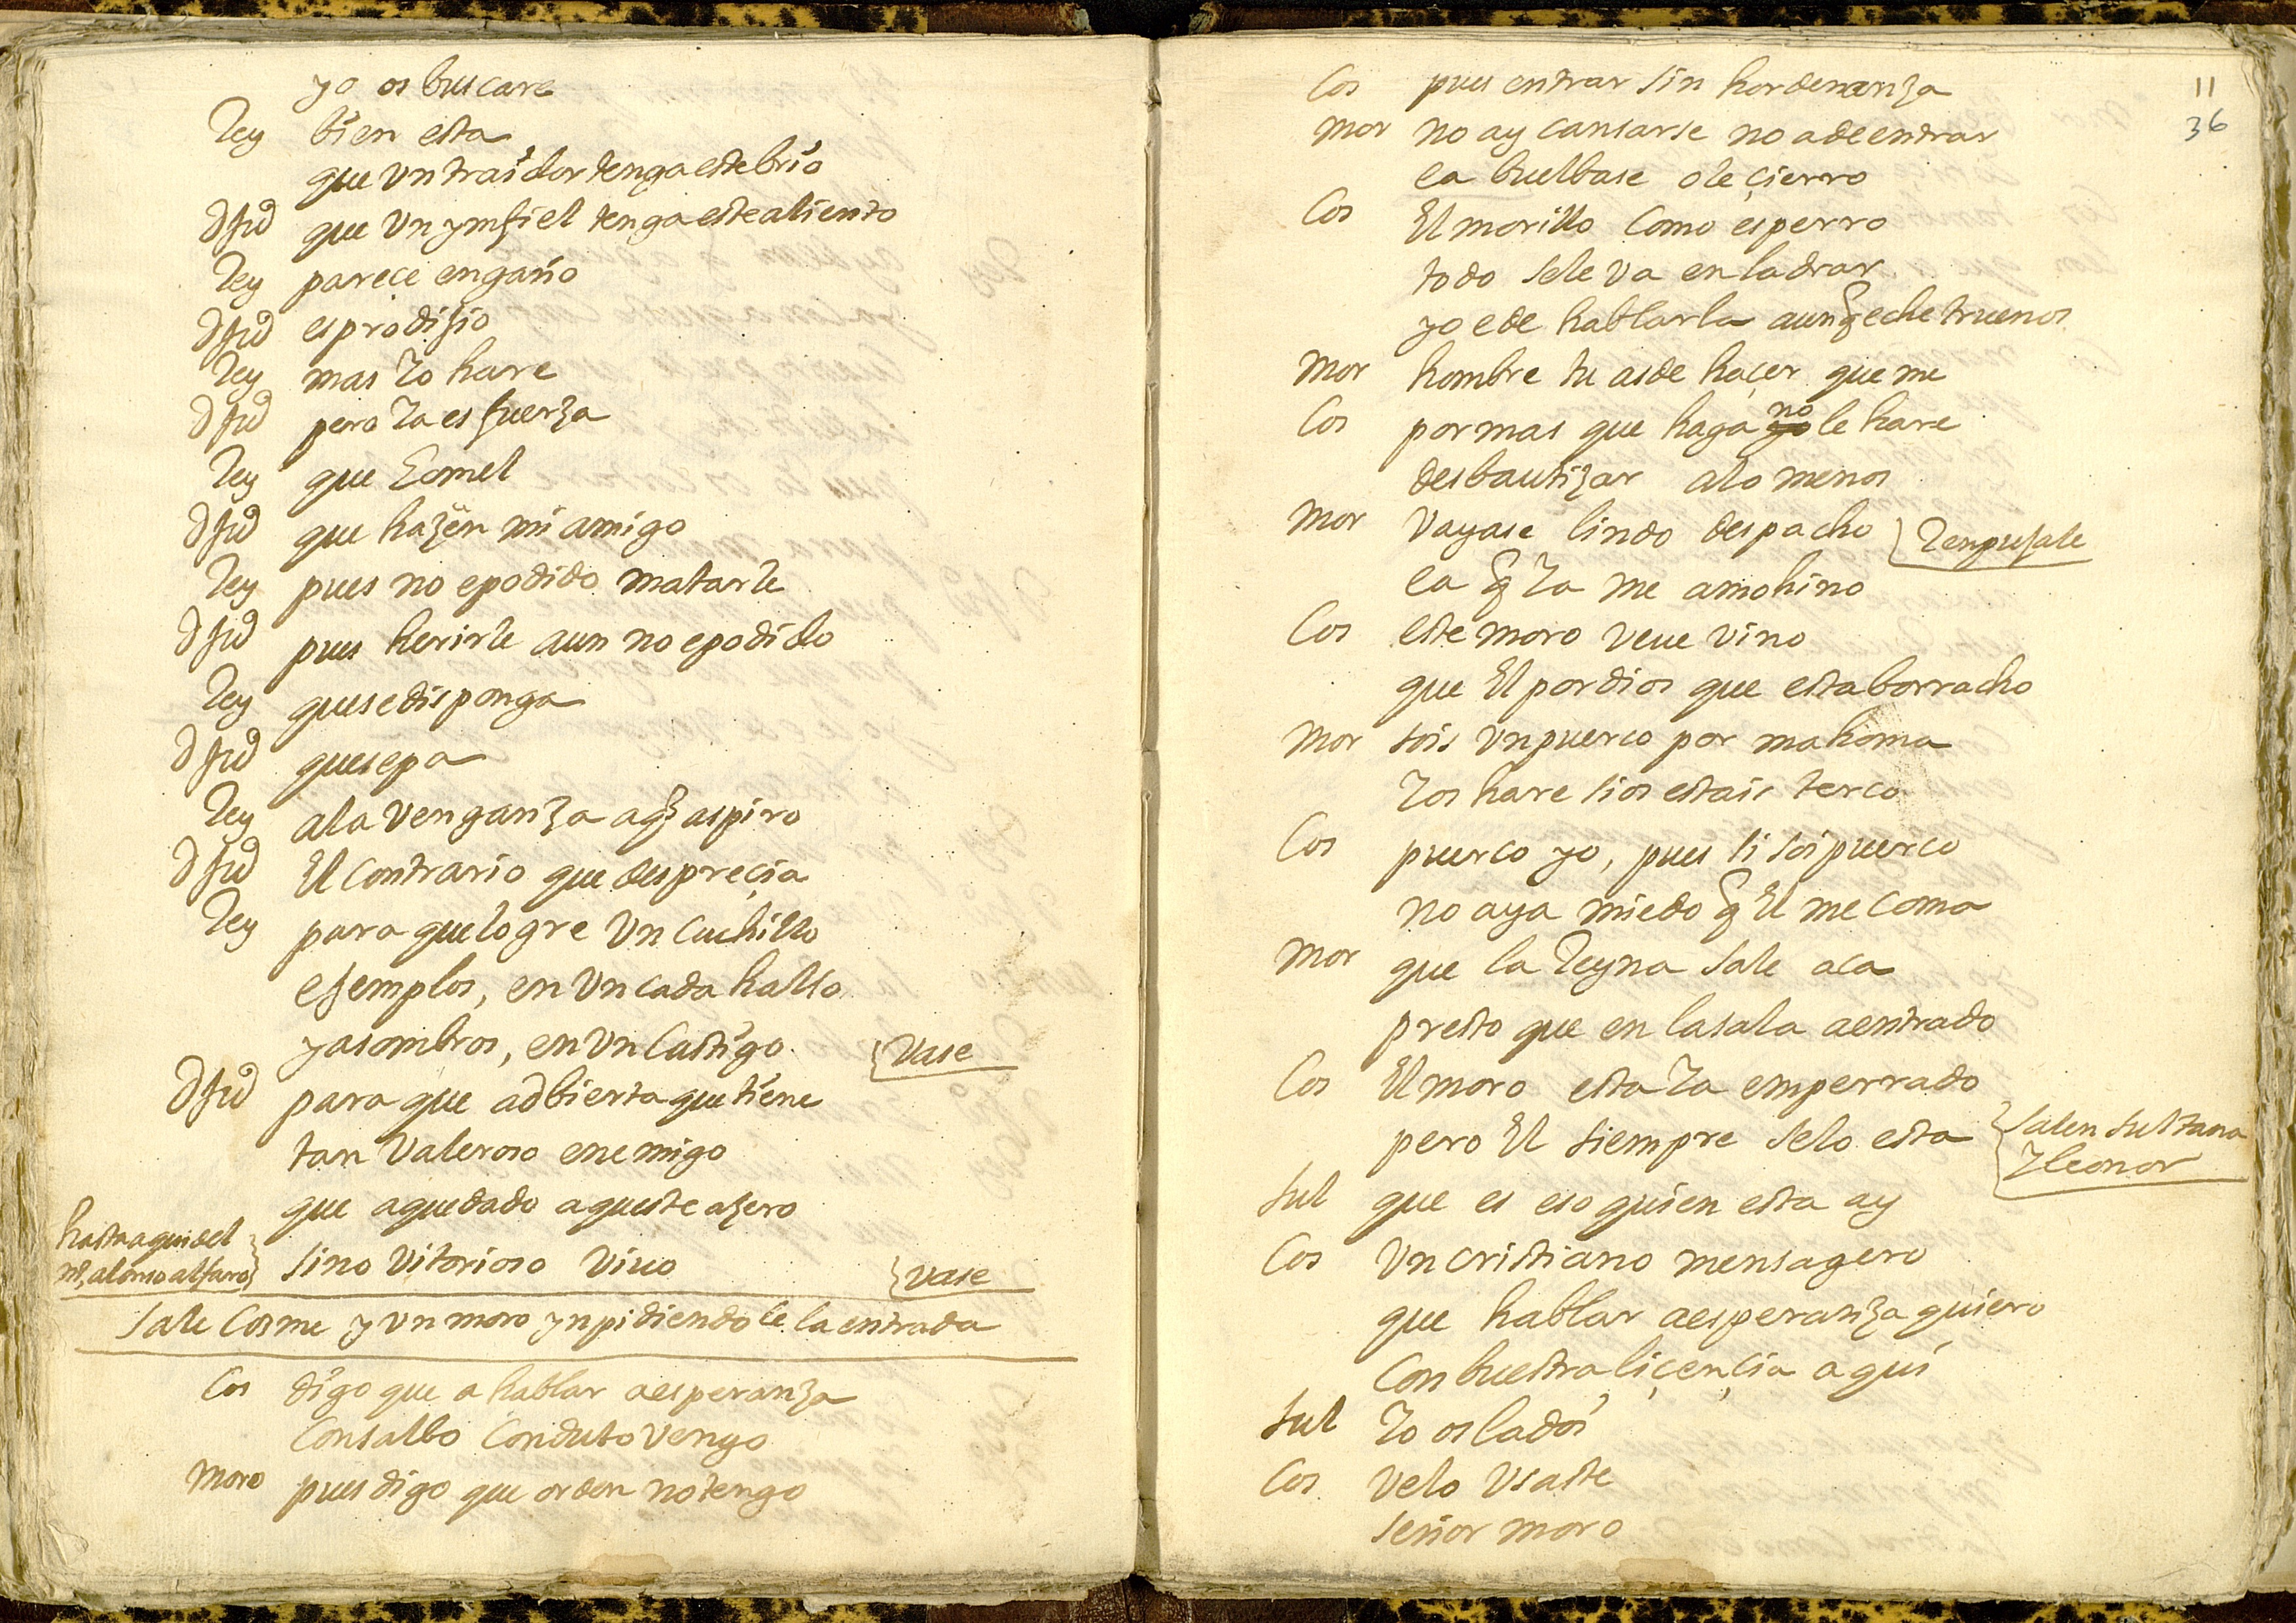 yo os buscare
Rey bien esta
que vn traidor tenga este brio
dfud que vn ynfiel tenga este aliento
Rey parece engaño
dfud es prodijio
Rey mas Yo hare
dfud pero Ya es fuerza
Rey que Comel
dfud que hazen mi amigo
Rey pues no e podido matarle
dfud pues herirle aun no e podido
Rey que se disponga
dfud que sepa
Rey a la venganza a q aspiro
dfud El contrario que desprecia
Rey para que logre vn cuchillo
ejemplos, en vn cada halso
y asombros, en vn castigo. Vase
dfud para que adbierta que tiene
tan valeroso enemigo
que a quedado a queste azero
hasta aqui del
alonso alfaro
sino vitorioso vivo Vase
Sale Cosme y vn moro ynpidiendo le la entrada
Cos digo que a hablar a esperanza
Con salbo Conduto vengo
Moro pues digo que orden no tengo
11
36
Cos pues entrar sin hordenanza
Mor no ay cansarse no a de entrar
ea buelbase o le çierro
Cos El morillo como es perro
todo se le va en ladrar
yo e de hablarla aunq eche truenos
Mor hombre tu as de haçer que me
Cos por mas que haga yo no le hare
desbautizar a lo menos
Mor Vayase lindo despacho Renpujale
ea q Ya me amohino
Cos este moro veue vino
que El por dios que esta borracho
Mor sois vn puerco por mahoma
Yos hare si os estais terco
Cos puerco yo, pues si soi puerco
no aya miedo q El me coma
Mor que la Reyna sale aca
presto que en la sala a entrado
Cos El moro esta Ya emperrado
pero El siempre se lo esta Salen sultana
Y leonor
Sul que es eso quien esta ay
Cos Vn cristiano mensagero
que hablar a esperanza quiero
Con buestra liçençia aqui
Sul Yo os la doi
Cos velo vsaste
señor moro